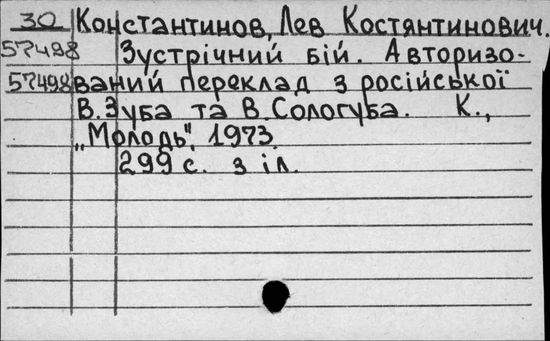 30 Константинов, Лев Костянтинович.
57498 Зустрічний бій. Авторизо-
57498 ваний переклад з російської
В. Зуба та В. Сологуба. К.,
„Молодь", 1973.
299 с. з іл.